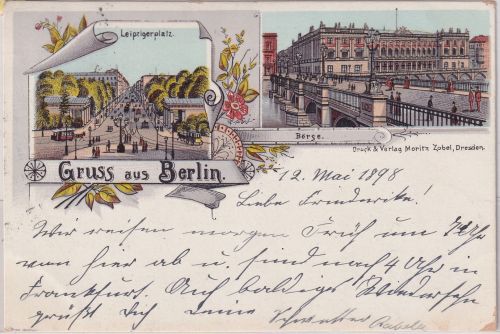 Leipzigerplatz.
Börse.
Druck & Verlag Moritz Zobel, Dresden.
Gruss aus Berlin.
12. Mai 1898
Liebe Friederike!
Wir reisen morgen Früh um 7 Uhr
von hier ab u. sind nach 4 Uhr in
Frankfurt. Auf baldiges Wiedersehn
grüßt Dich Deine Schwester